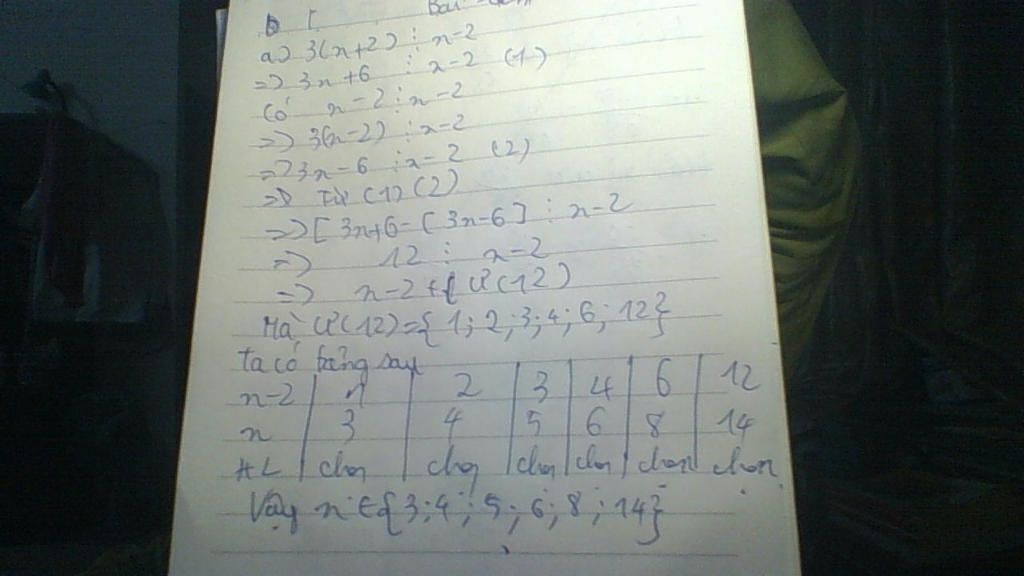 Bài làm
a) 3(n+2) ⋮ n-2
=> 3n+6 ⋮ n-2 (1)
Có n-2 ⋮ n-2
=> 3(n-2) ⋮ n-2
=> 3n-6 ⋮ n-2 (2)
=> Từ (1) (2)
=> [3n+6-(3n-6] ⋮ n-2
=> 12 ⋮ n-2
=> n-2 ∈ Ư(12)
Mà Ư(12)={1;2;3;4;6;12}
Ta có bảng sau
n-2 | 1 | 2 | 3 | 4 | 6 | 12
n | 3 | 4 | 5 | 6 | 8 | 14
KL | chọn | chọn | chọn | chọn | chọn | chọn
Vậy n ∈{3;4;5;6;8;14}